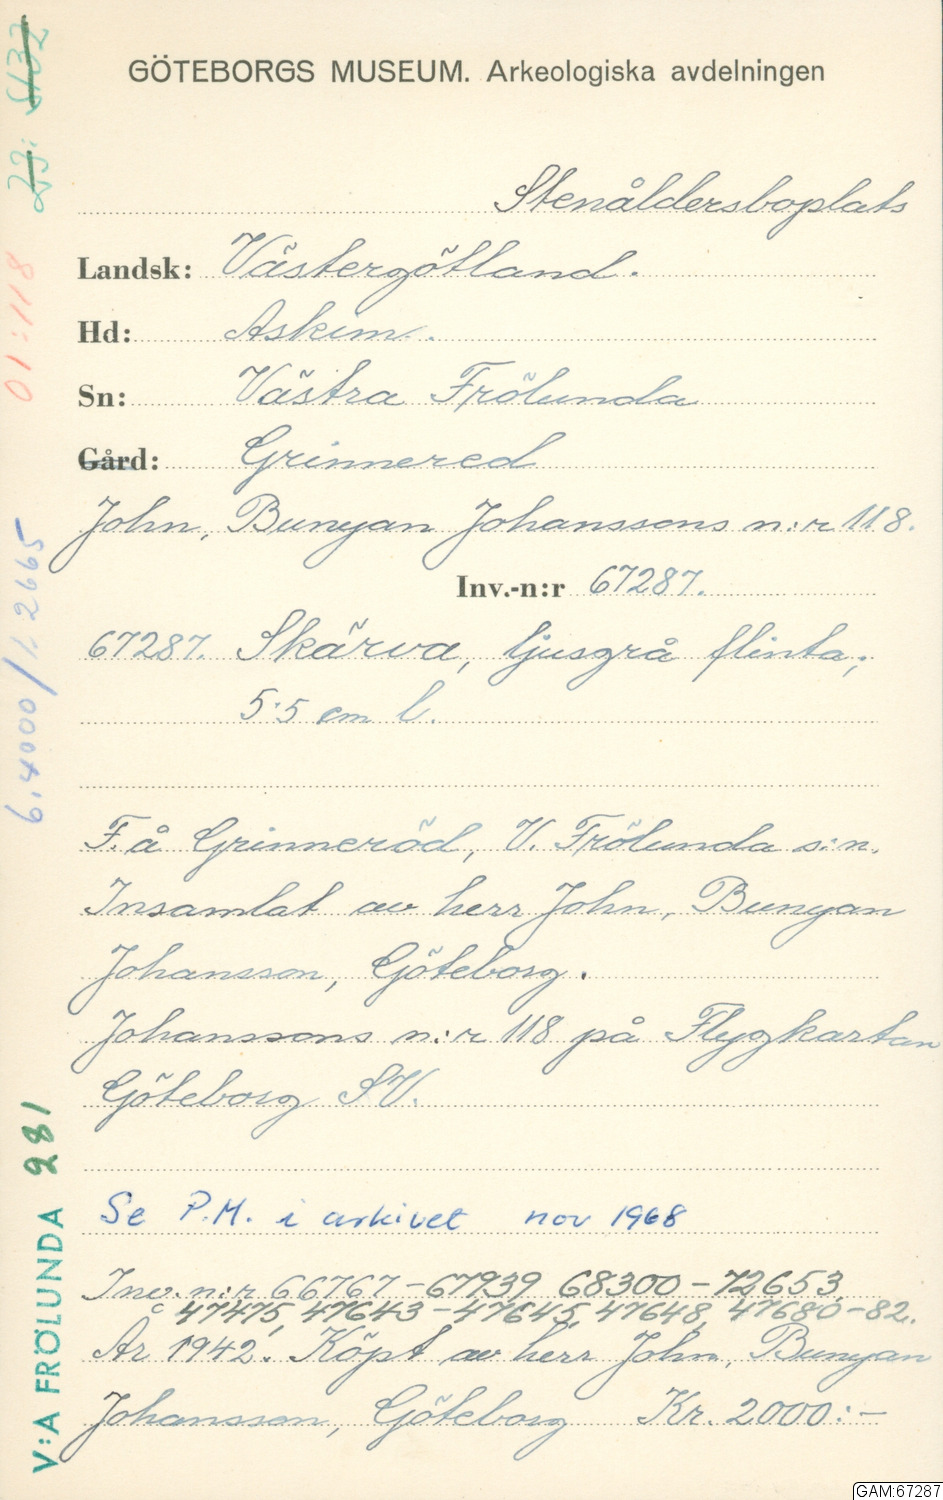 GÖTEBORGS MUSEUM. Arkeologiska avdelningen
Stenåldersboplats
Landsk: Västergötland.
Hd: Askim.
Sn: Västra Frölunda
Gård: Grinnered
John, Bunyan Johanssons n:r 118.
Inv.-n:r 67287.
67287. Skärva, ljusgrå flinta,
5.5 cm l.
F. å Grinneröd, V. Frölunda s:n.
Insamlat av herr John, Bunyan
Johansson, Göteborg.
Johanssons n:r 118 på Flygkartan
Göteborg SV.
Se P.M. i arkivet nov 1968
Inv. n:r 66767-67939, 68300-72653,
47475, 47643-47645, 47648, 47680-82.
År 1942. Köpt av herr John, Bunyan
Johansson, Göteborg Kr. 2000:-
V:A FRÖLUNDA 281
6.4000/1.2665
01:118
23:
GAM:67287